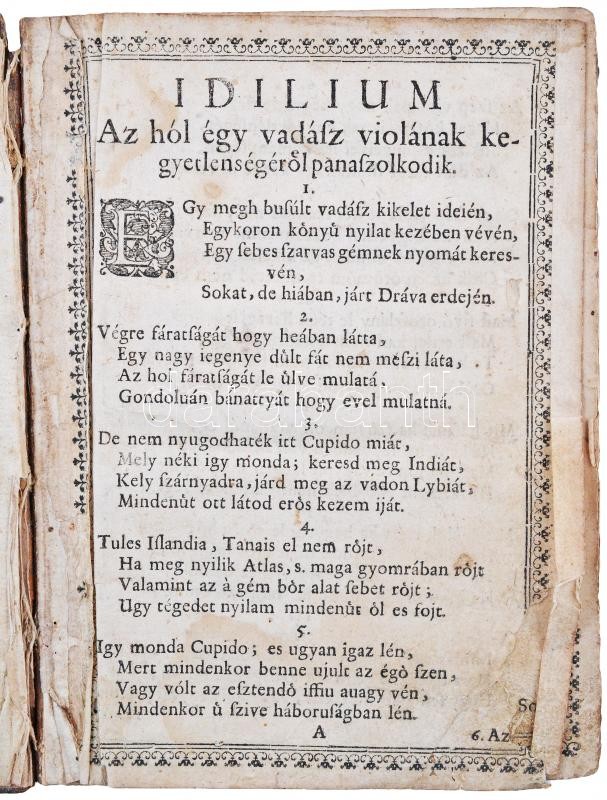 IDILIUM
Az hól égy vadász violának ke-
gyetlenségéről panaszolkodik.
1.
EGy megh busúlt vadász kikelet ideién,
Egykoron kőnyű nyilat kezében vévén,
Egy sebes szarvas gémnek nyomát keres-
vén,
Sokat, de hiában, járt Dráva erdején.
2.
Végre fáratságát hogy heában látta,
Egy nagy iegenye důlt fát nem mészi láta,
Az hol fáratságát le ůlve mulatá.
Gondoluán bánattyát hogy evel mulatná.
3.
De nem nyugodhaték itt Cupido miát,
Mely néki igy monda; keresd meg Indiát,
Kely szárnyadra, járd meg az vadon Lybiát,
Mindenůt ott látod erős kezem iját.
4.
Tules Islandia, Tanais el nem rőjt,
Ha meg nyilik Atlas, s. maga gyomrában rőjt
Valamint az à gém bőr alat sebet rőjt;
Ugy tégedet nyilam mindenůt ól es fojt.
5.
Igy monda Cupido; es ugyan igaz lén,
Mert mindenkor benne ujult az égő szen,
Vagy vólt az esztendő iffiu auagy vén,
Mindenkor ů szive háboruságban lén.
So
A
6. Az
darabanth